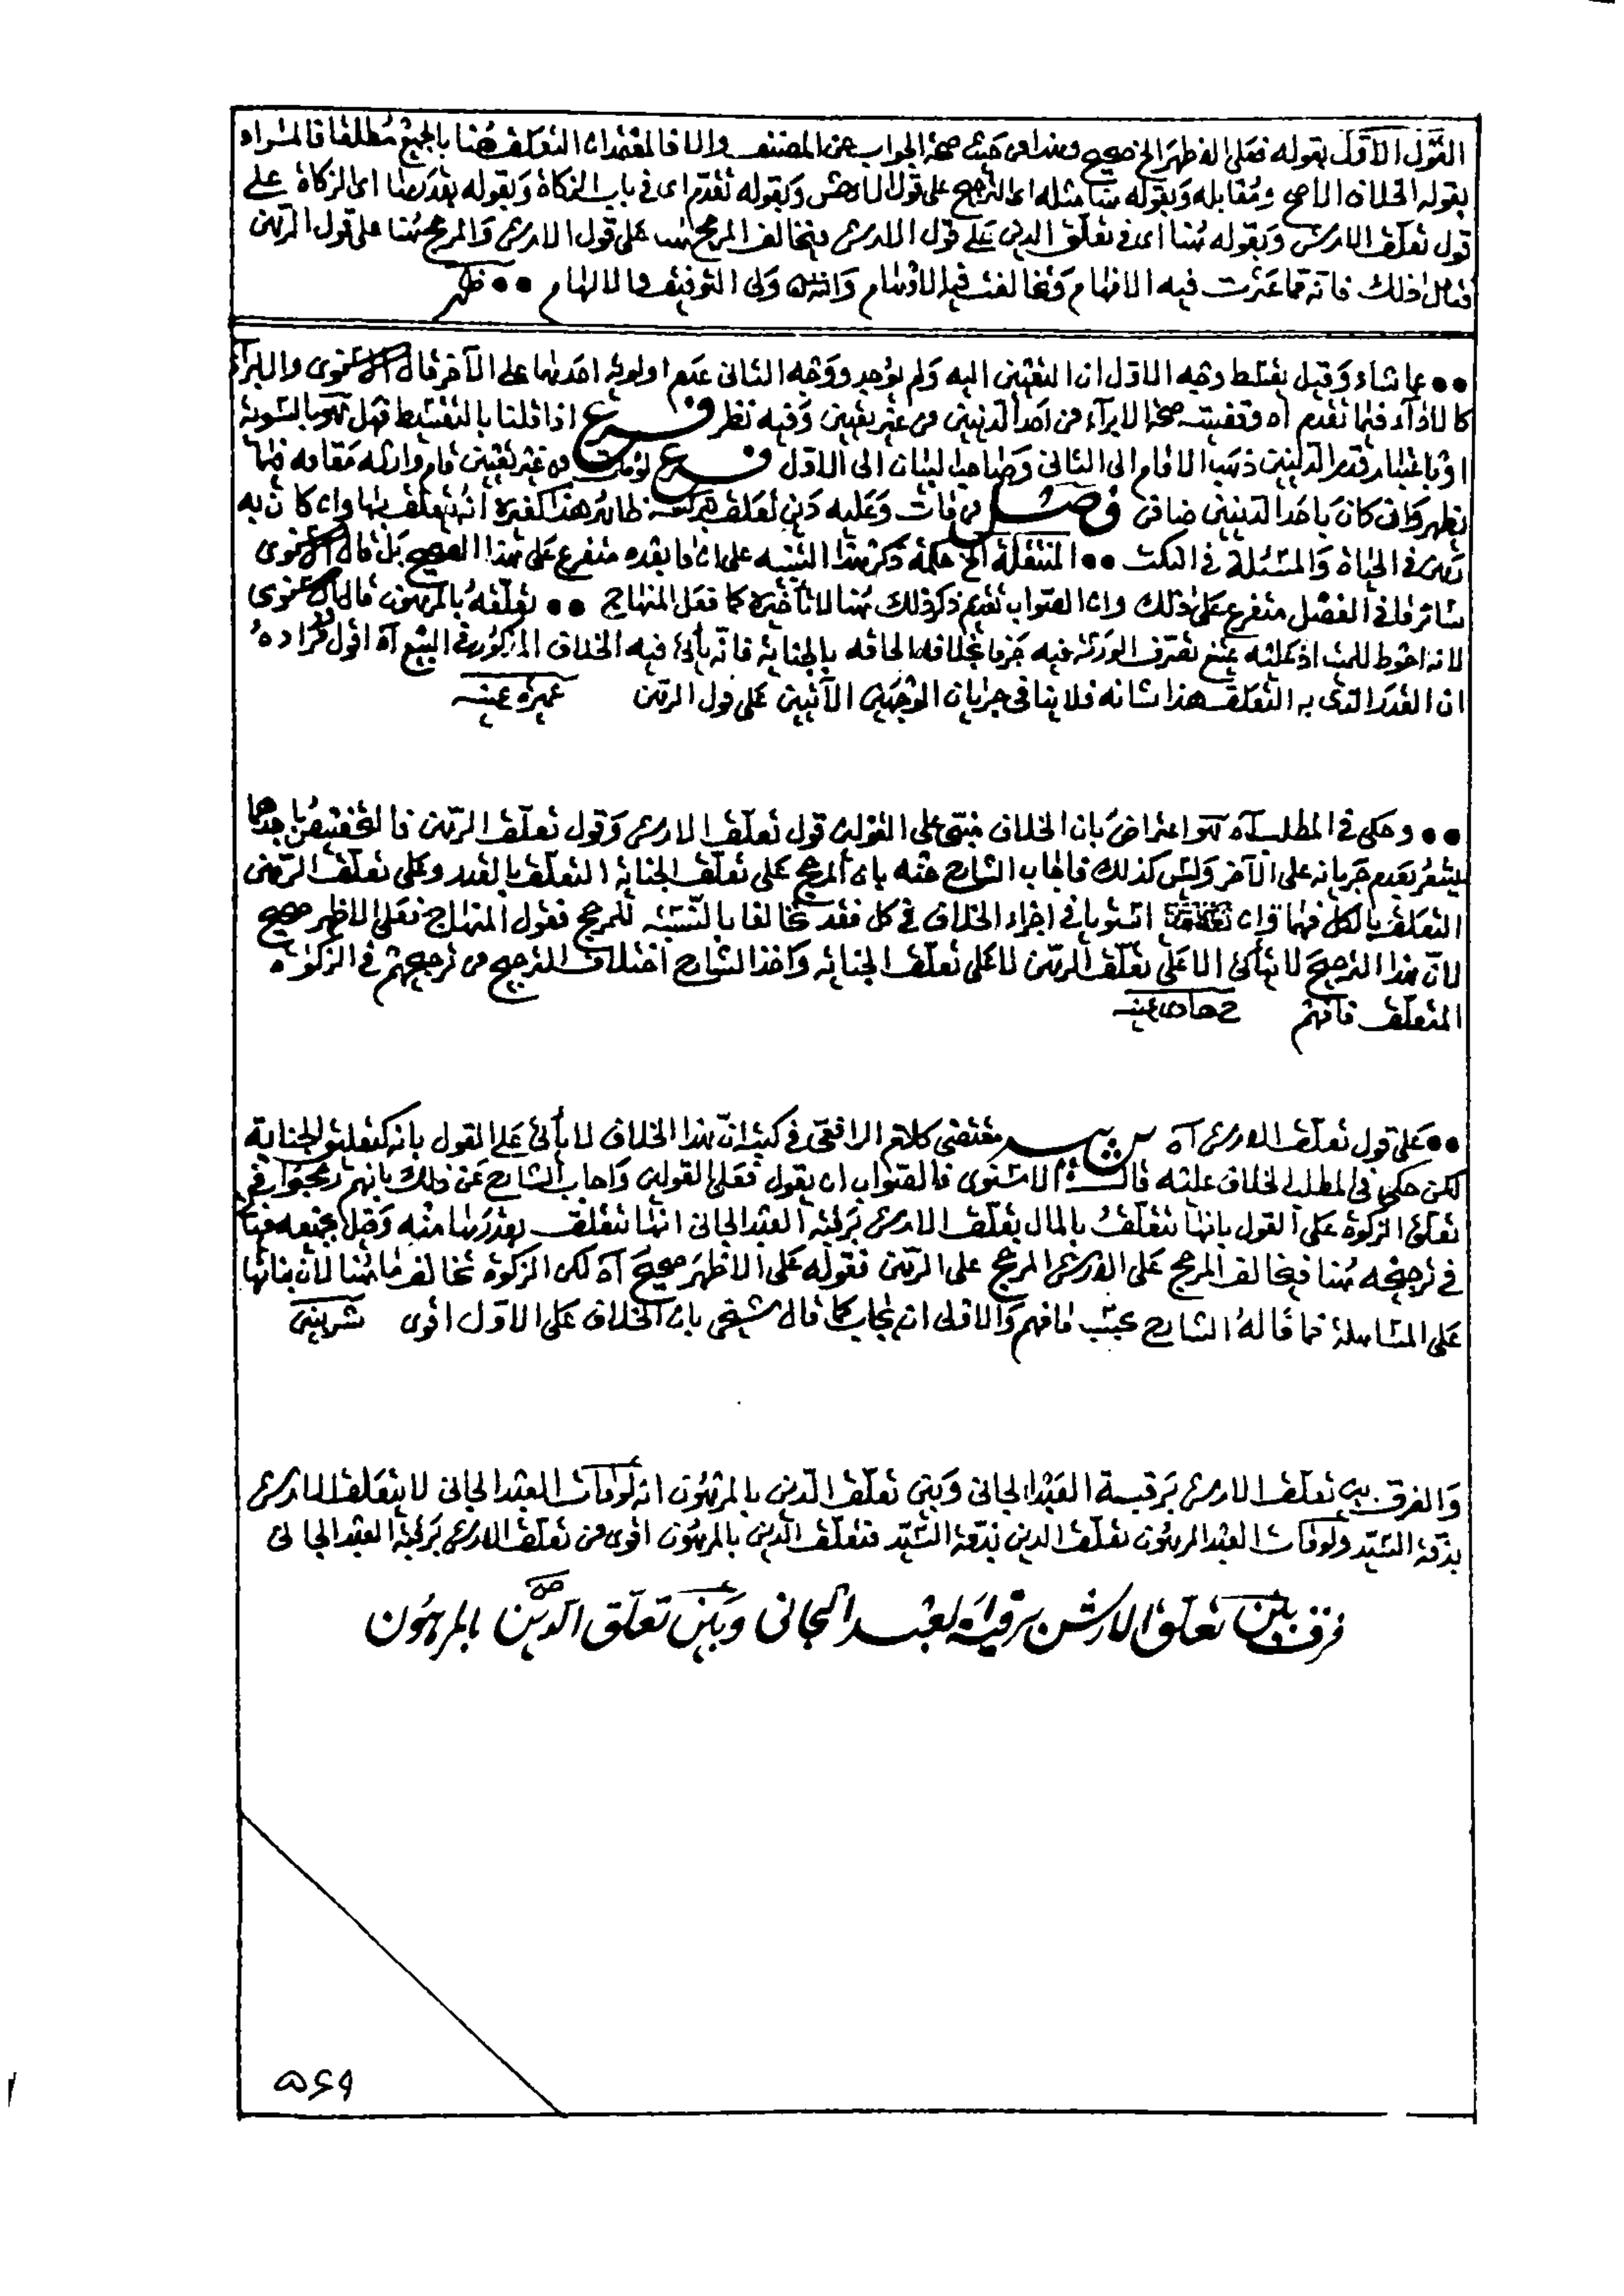 القول الاول بقوله فعلى الاظهر الخ صحيح وهذا من حيث صحة الجواب عن المصنف والا فالمعتمد ان التعلق هنا بالجميع مطلقا فالمراد
بقوله الخلاف الاصح ومقابله وبقوله هنا مثله اى الترجيح على قول الارش وبقوله تقدم اى فى باب الزكاة وبقوله بقدرها اى الزكاة على
قول تعلق الارش وبقوله هنا اى فى تعلق الدين على قول الارش فيخالف المرجح هنا على قول الارش والمرجح هنا على قول الرهن
فتأمل ذلك فانه مما عثرت فيه الافهام وتخالفت فيه الاوهام والله ولى التوفيق والالهام •• ظهر
•• عما شاء وقيل يقسّط وجه الاول ان التعيين اليه ولم يوجد ووجه الثانى عدم اولوية احدهما على الآخر قال الاسنوى والابراء
كالاداء فيما تقدم اه وقضيته صحة الابراء من احد الدينين من غير تعيين وفيه نظر فرع اذا قلنا بالتقسيط فهل هو بالسوية
او باعتبار قدر الدينين ذهب الامام الى الثانى وصاحب البيان الى الاول فرع لو مات من غير تعيين قام وارثه مقامه فيما
يظهر وان كان باحد الدينين ضامن فصل من مات وعليه دين تعلق بتركته ظاهر هذا كغيره انه يتعلق بها وان كان به
رهن فى الحياة والمسئلة فى النكت •• المنتقلة الخ حكمة ذكر هذا التنبيه على ان ما بعده متفرع على هذا الصحيح بل قال الاسنوى
سائر ما فى الفصل متفرع على ذلك وان الصواب تقديم ذكر ذلك هنا لا تأخيره كما فعل المنهاج •• تعلقه بالمرهون قال الاسنوى
لانه احوط للميت اذ عليه يمتنع تصرف الورثة فيه جزما بخلاف الحاقه بالجناية فانه يأتى فيه الخلاف المذكور فى البيع اه اقول مراده
ان القدر الذى به التعلق هذا شانه فلا ينافى جريان الوجهين الآتيين على قول الرهن عميره عينه
•• وحكى فى المطلب اه هو اعتراض بان الخلاف مبنى على القولين قول تعلق الارش وقول تعلق الرهن فالتخصيص باحدهما
يشعر بعدم جريانه على الآخر وليس كذلك فاجاب الشارح عنه بان المرجح على تعلق الجناية التعلق بالقدر وعلى تعلق الرهن
التعلق بالكل فهما وان استويا فى اجراء الخلاف فى كل فقد تخالفا بالنسبة للمرجح فقول المنهاج فعلى الاظهر صحيح
لان هذا الترجيح لا يتأتى الا على تعلق الرهن لا على تعلق الجناية واخذ الشارح اختلاف الترجيح من ترجيحهم فى الزكوة
المتعلق فافهم
•• على قول تعلق الارش اه مقتضى كلام الرافعى فى كتبه ان هذا الخلاف لا يأتى على القول بانه كتعلق الجناية
لكن حكى فى المطلب الخلاف عليه قال الاسنوى فالصواب ان يقول فعلى القولين واجاب الشارح عن ذلك بانهم رجحوا فى
تعلق الزكوة على القول بانها تتعلق بالمال تعلق الارش برقبة العبد الجانى انها تتعلق بقدرها منه وقيل بجميعه فيأتى
فى ترجيحه هنا فيخالف المرجح على الارش المرجح على الرهن فقوله على الاظهر صحيح اه لكن الزكوة تخالف ما هنا لان بنائها
على المساهلة فما قاله الشارح عجيب فافهم والاولى ان يجاب كما قال شيخى بان الخلاف على الاول اقوى شربينى
والفرق بين تعلق الارش برقبة العبد الجانى وبين تعلق الدين بالمرهون انه لو مات العبد الجانى لا يتعلق الارش
بذمة السيد ولو مات العبد المرهون تعلق الدين بذمة السيد فتعلق الدين بالمرهون اقوى من تعلق الارش برقبة العبد الجانى
فرق بين تعلق الارش برقبة العبد الجانى وبين تعلق الدين بالمرهون
۵۶۹